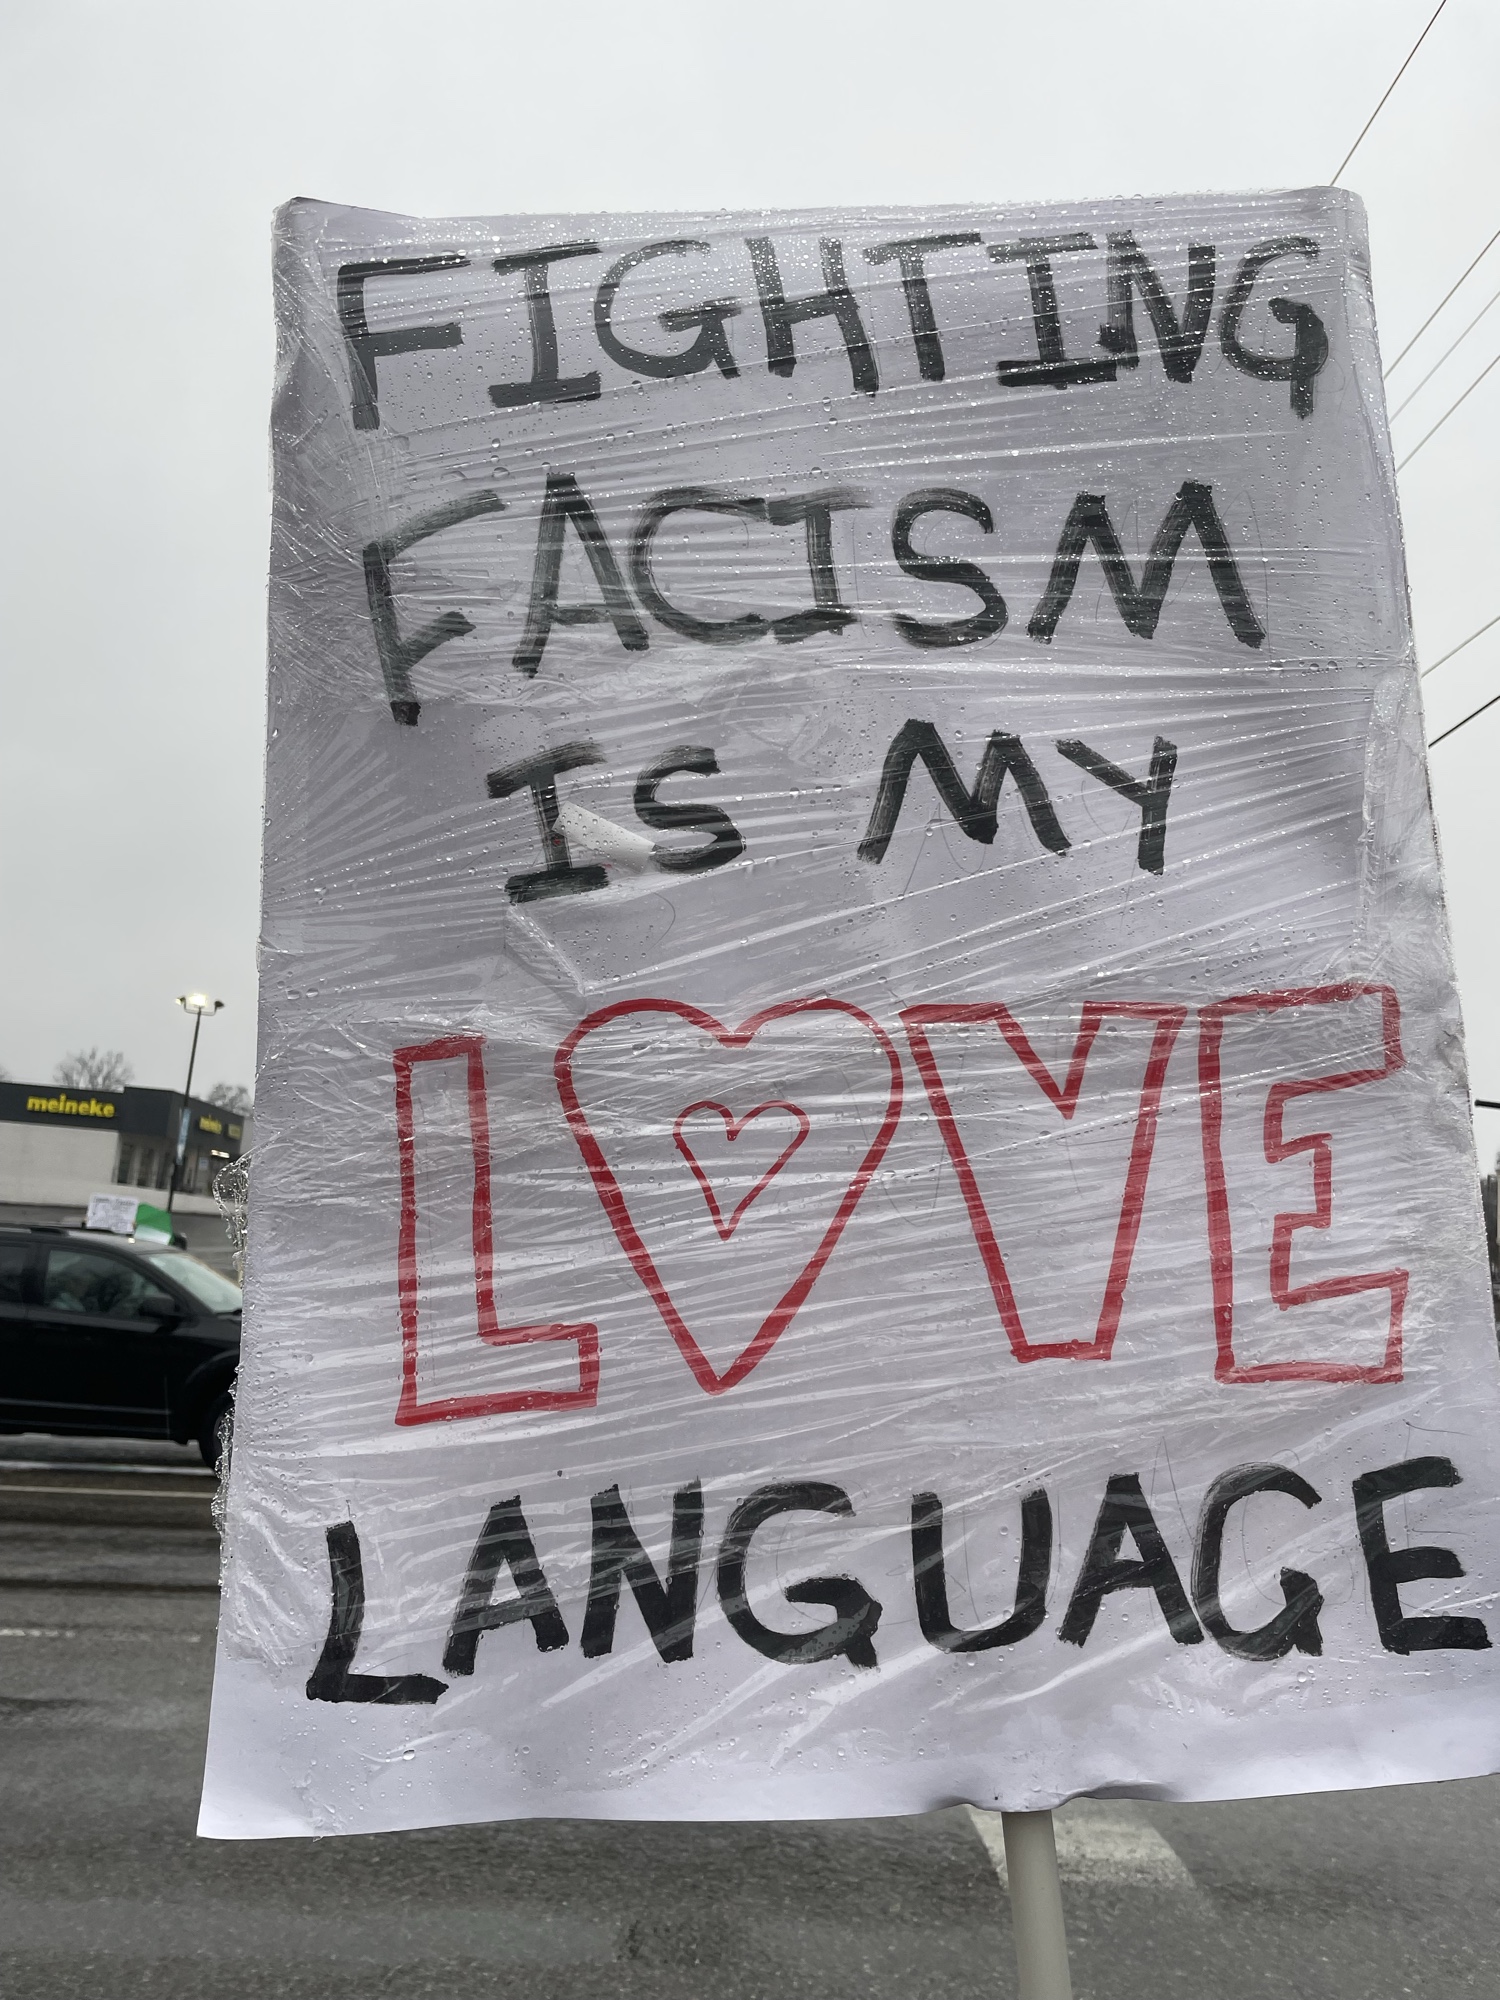 FIGHTING
FACISM
IS MY
LOVE
LANGUAGE
meineke